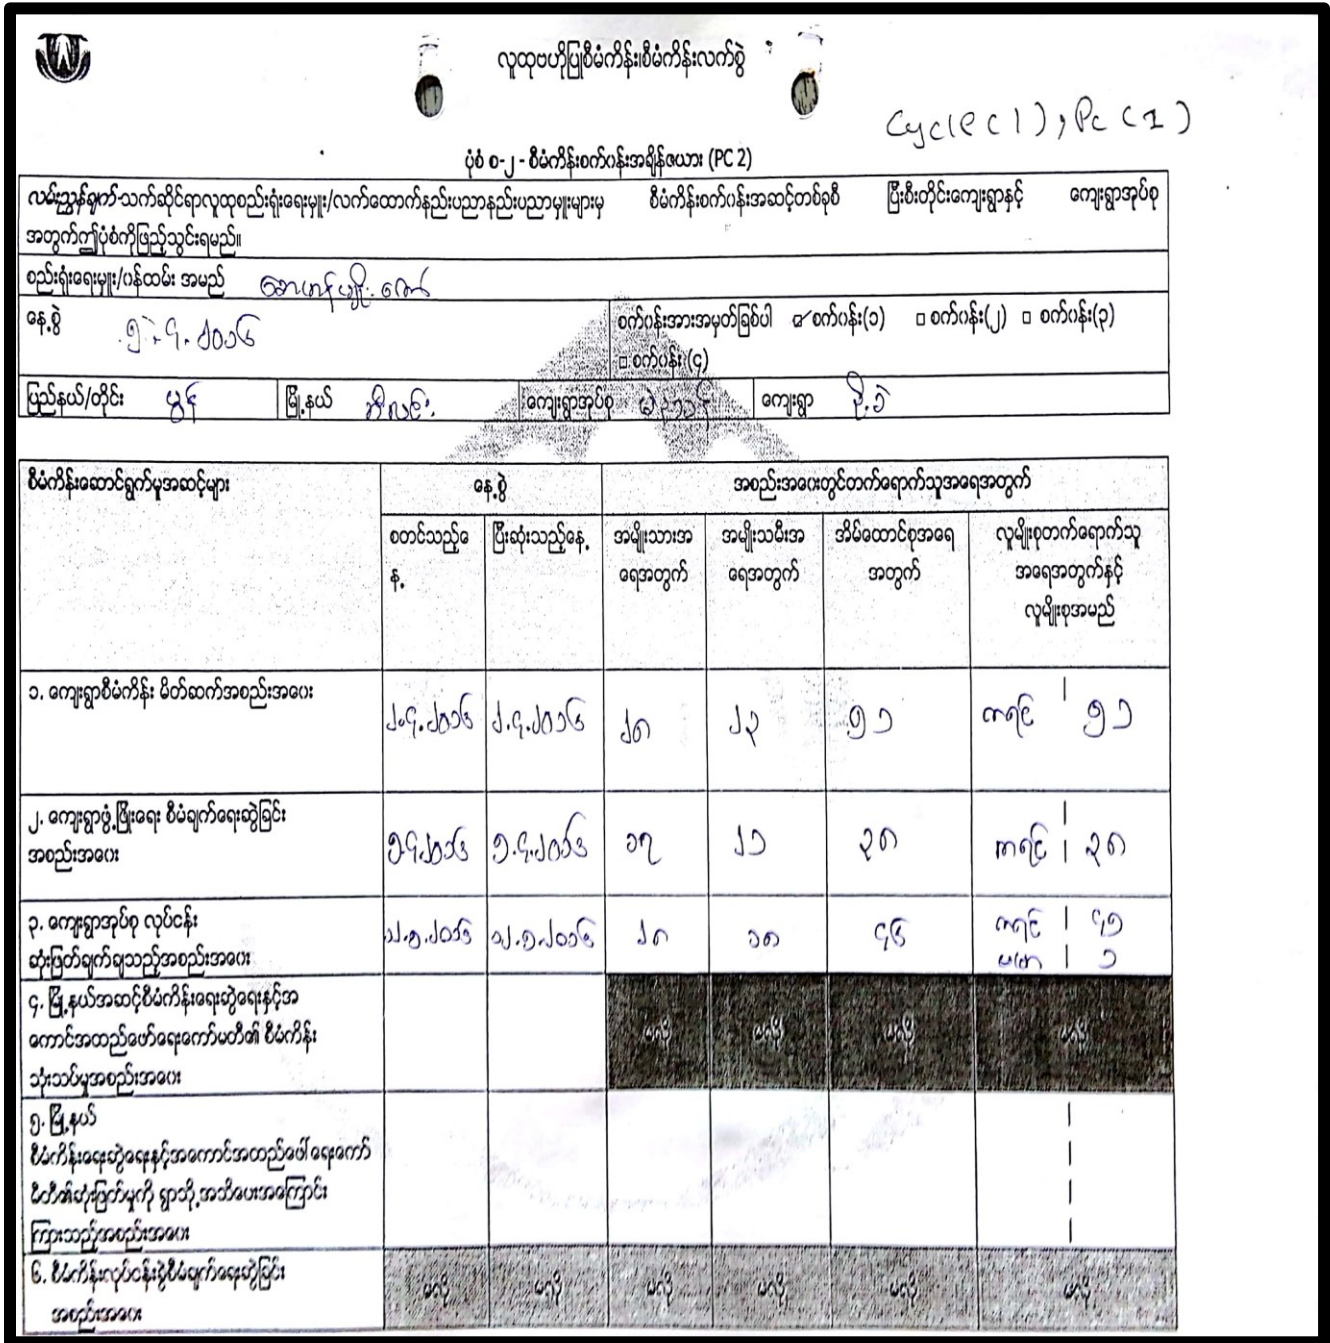 လူထုဗဟိုပြုစီမံကိန်း၊စီမံကိန်းလက်စွဲ
Cycle (1), Pc (1)
ပုံစံ စ-၂ - စီမံကိန်းစက်ဝန်းအချိန်ဇယား (PC 2)
လမ်းညွှန်ချက်-သက်ဆိုင်ရာလူထုစည်းရုံးရေးမှူး/လက်ထောက်နည်းပညာနည်းပညာမှူးများမှ စီမံကိန်းစက်ဝန်းအဆင့်တစ်ခုစီ ပြီးစီးတိုင်းကျေးရွာနှင့် ကျေးရွာအုပ်စု
အတွက်ဤပုံစံကိုဖြည့်သွင်းရမည်။
စည်းရုံးရေးမှူး/ဝန်ထမ်း အမည်
နေ့စွဲ ၅.၄.၂၀၁၆ စက်ဝန်းအားအမှတ်ခြစ်ပါ ☑ စက်ဝန်း(၁) □ စက်ဝန်း(၂) □ စက်ဝန်း(၃)
□ စက်ဝန်း(၄)
ပြည်နယ်/တိုင်း မွန် မြို့နယ် ဘီးလင်း ကျေးရွာအုပ်စု ကျေးရွာ
စီမံကိန်းဆောင်ရွက်မှုအဆင့်များ နေ့စွဲ အစည်းအဝေးတွင်တက်ရောက်သူအရေအတွက်
စတင်သည့်နေ့ ပြီးဆုံးသည့်နေ့ အမျိုးသားအရေအတွက် အမျိုးသမီးအရေအတွက် အိမ်ထောင်စုအရေအတွက် လူမျိုးစုတက်ရောက်သူ
အရေအတွက်နှင့်
လူမျိုးစုအမည်
၁. ကျေးရွာစီမံကိန်း မိတ်ဆက်အစည်းအဝေး
၂.၄.၂၀၁၆ ၂.၄.၂၀၁၆ ၂၈ ၂၃ ၅၁ ကရင် ၅၁
၂. ကျေးရွာဖွံ့ဖြိုးရေး စီမံချက်ရေးဆွဲခြင်း
အစည်းအဝေး
၅.၄.၂၀၁၆ ၅.၄.၂၀၁၆ ၁၇ ၂၁ ၃၈ ကရင် ၃၈
၃. ကျေးရွာအုပ်စု လုပ်ငန်း
ဆုံးဖြတ်ချက်ချသည့်အစည်းအဝေး
၁၂.၅.၂၀၁၆ ၁၂.၅.၂၀၁၆ ၂၈ ၁၈ ၄၆ ကရင် ၄၅
ဗမာ ၁
၄. မြို့နယ်အဆင့်စီမံကိန်းရေးဆွဲရေးနှင့်အ
ကောင်အထည်ဖော်ရေးကော်မတီ၏ စီမံကိန်း
သုံးသပ်မှုအစည်းအဝေး
မလို မလို မလို မလို
၅. မြို့နယ်
စီမံကိန်းရေးဆွဲရေးနှင့်အကောင်အထည်ဖေါ်ရေးကော်
မီတီ၏ဆုံးဖြတ်မှုကို ရွာသို့အသိပေးအကြောင်း
ကြားသည့်အစည်းအဝေး
၆. စီမံကိန်းလုပ်ငန်းခွဲစီမံချက်ရေးဆွဲခြင်း
အစည်းအဝေး
မလို မလို မလို မလို မလို မလို